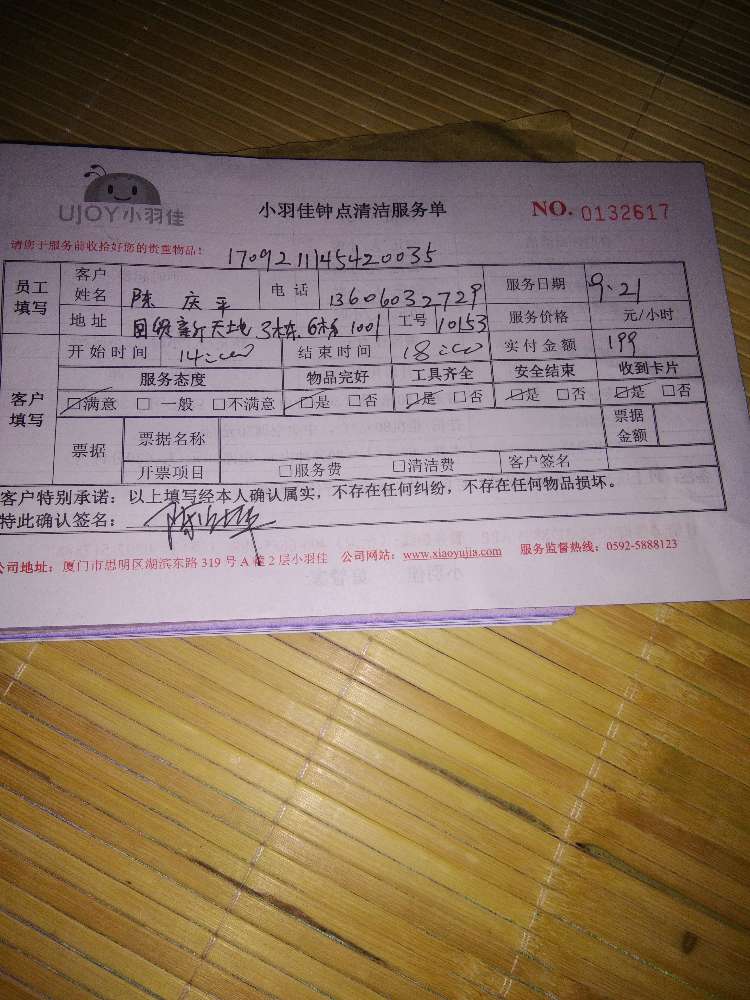 UJOY小羽佳
小羽佳钟点清洁服务单
NO. 0132617
请您于服务前收拾好您的贵重物品！
170921114542​0035
员工填写 客户姓名 陈庆平 电话 13606032729 服务日期 9.21
地址 新天地3栋6梯1001 工号 10153 服务价格 元/小时
开始时间 14:00 结束时间 18:00 实付金额 199
客户填写 服务态度 物品完好 工具齐全 安全结束 收到卡片
☑满意 □一般 □不满意 ☑是 □否 ☑是 □否 ☑是 □否 ☑是 □否
票据 票据名称 票据金额
开票项目 □服务费 □清洁费 客户签名
客户特别承诺：以上填写经本人确认属实，不存在任何纠纷，不存在任何物品损坏。
特此确认签名：
公司地址：厦门市思明区湖滨东路 319 号 A 幢 2 层小羽佳 公司网站：www.xiaoyujia.com 服务监督热线：0592-5888123